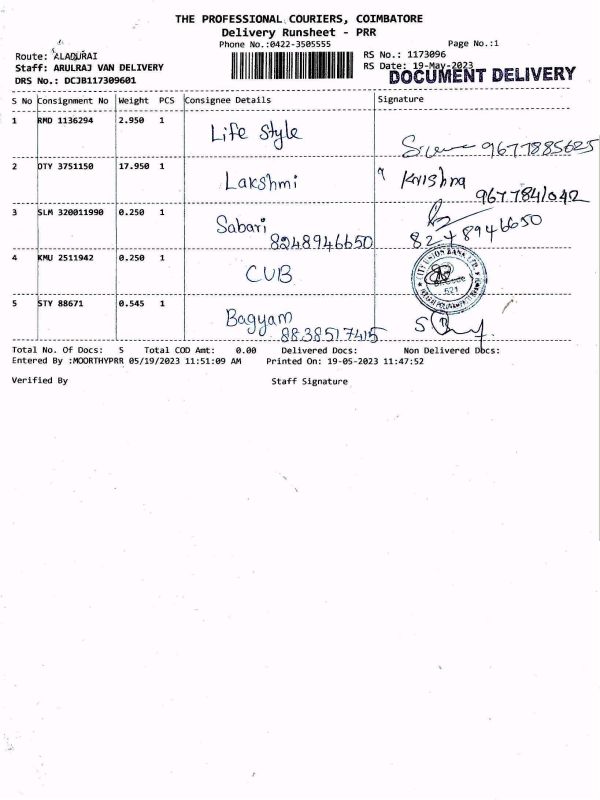 THE PROFESSIONAL COURIERS, COIMBATORE
Delivery Runsheet - PRR
Phone No.:0422-3505555
Page No.:1
Route: ALADURAI
RS No.: 1173096
Staff: ARULRAJ VAN DELIVERY
RS Date: 19-May-2023
DRS No.: DCJB117309601
DOCUMENT DELIVERY
S No Consignment No Weight PCS Consignee Details Signature
1 RMD 1136294 2.950 1 Life Style 9677885625
2 OTY 3751150 17.950 1 Lakshmi Krishna
9677841042
3 SLM 320011990 0.250 1 Sabari
8248946650 8248946650
4 KMU 2511942 0.250 1 CUB CITY UNION BANK LTD
521
5 STY 88671 0.545 1 Bagyam
8838517415
Total No. Of Docs: 5 Total COD Amt: 0.00 Delivered Docs: Non Delivered Docs:
Entered By :MOORTHYPRR 05/19/2023 11:51:09 AM Printed On: 19-05-2023 11:47:52
Verified By Staff Signature